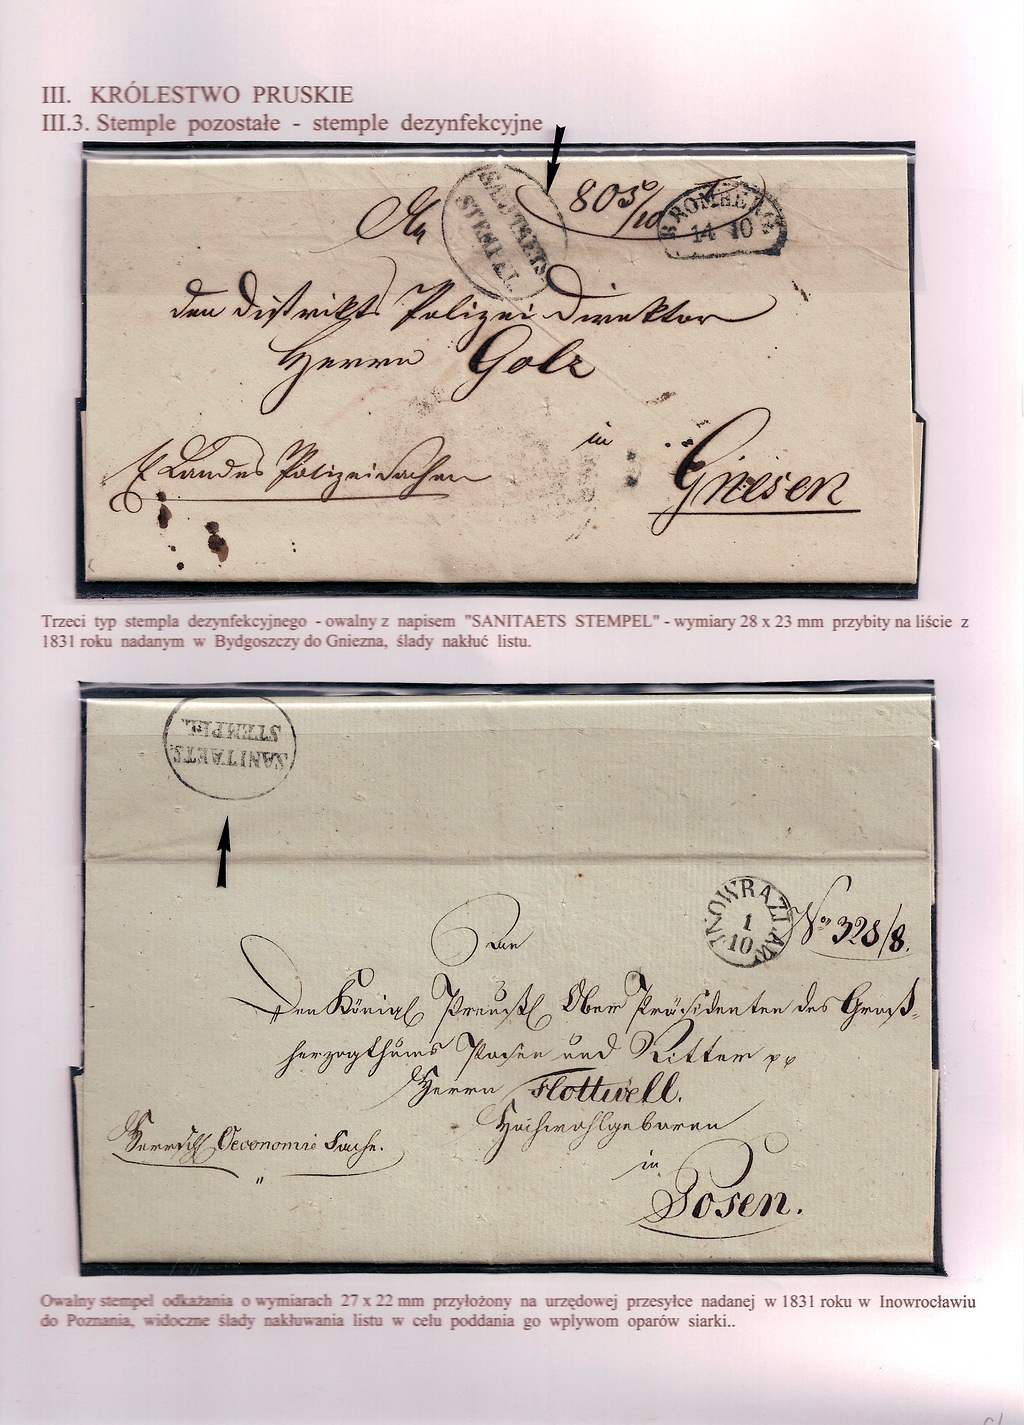 III. KRÓLESTWO PRUSKIE
III.3. Stemple pozostałe - stemple dezynfekcyjne
An
SANITAETS
STEMPEL.
805/10
BROMBERG
14 10
den Distrikts Polizei Direktor
Herrn Golz
in
Landes Polizei Sachen
Gnesen
Trzeci typ stempla dezynfekcyjnego - owalny z napisem "SANITAETS STEMPEL" - wymiary 28 x 23 mm przybity na liście z
1831 roku nadanym w Bydgoszczy do Gniezna, ślady nakłuć listu.
SANITAETS.
STEMPEL.
INOWRAZLAW
1
10
No 328/8.
An
Den Königl Preußl Ober Präsidenten des Groß-
herzogthums Posen und Ritter pp
Herrn Flottwell.
Hochwohlgeboren
Herrschl Oeconomie Sache.
in
Posen.
Owalny stempel odkażania o wymiarach 27 x 22 mm przyłożony na urzędowej przesyłce nadanej w 1831 roku w Inowrocławiu
do Poznania, widoczne ślady nakłuwania listu w celu poddania go wpływom oparów siarki..